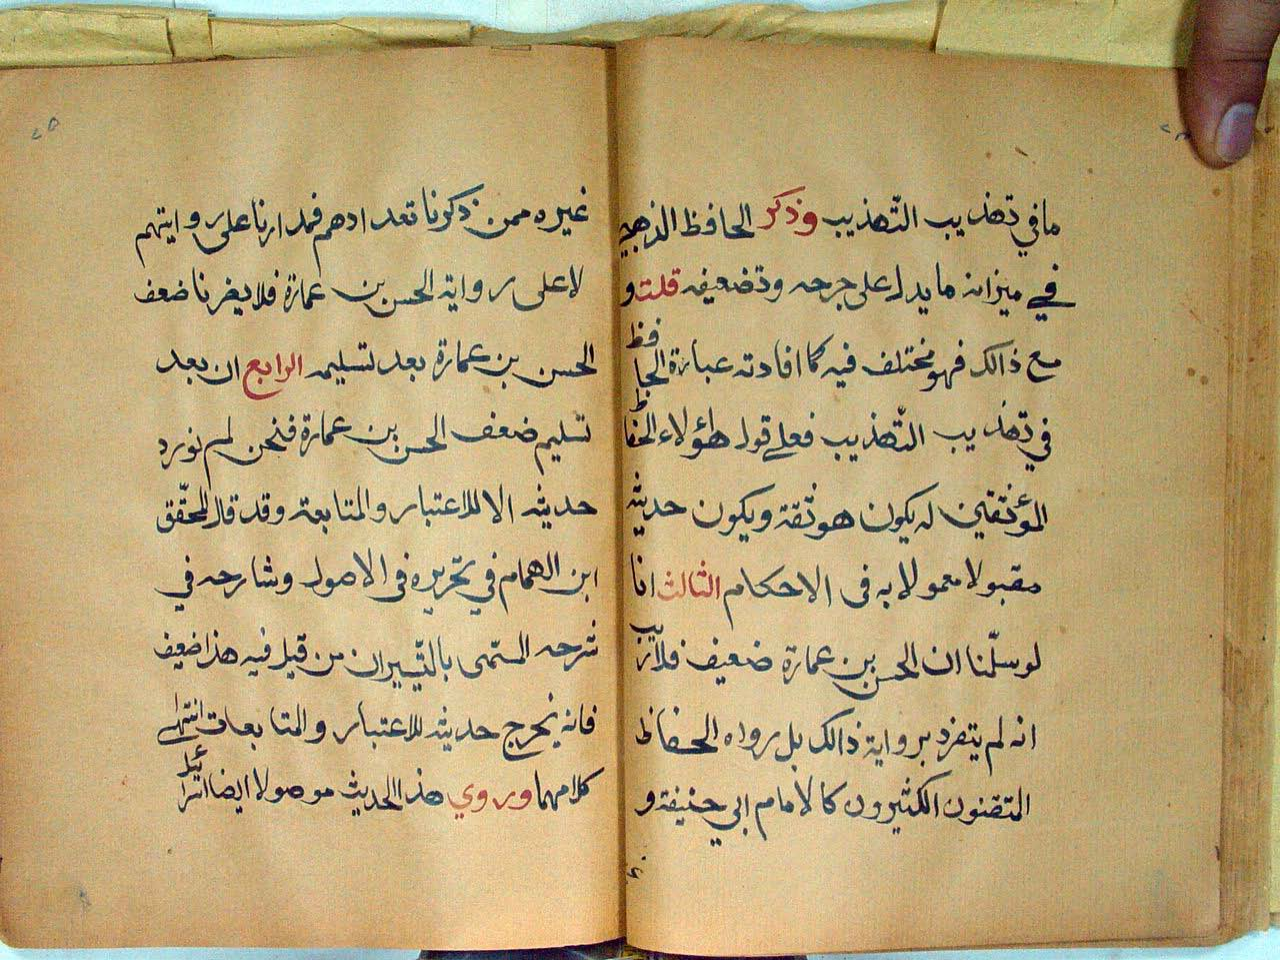 ما في تهذيب التّهذيب وذكر الحافظ الذهبي
في ميزانه ما يدل على جرحه وتضعيفه قلت و
مع ذالك فهو مختلف فيه كما افادته عبارة الحافظ
في تهذيب التّهذيب فعلى قول هؤلاء الحفاظ
المؤثقين له يكون هو ثقة ويكون حديثه
مقبولا معمولا به فى الاحكام الثالث انا
لو سلّمنا ان الحسن بن عمارة ضعيف فلا ريب
انه لم يتفرد برواية ذالك بل رواه الحفاظ
المتقنون الكثيرون كالامام ابي حنيفة و
غيره ممن ذكرنا تعدادهم فمدارنا على روايتهم
لا على رواية الحسن بن عمارة فلا يضرنا ضعف
الحسن بن عمارة بعد تسليمه الرابع ان بعد
تسليم ضعف الحسن بن عمارة فنحن لم نورد
حديثه الا للاعتبار والمتابعة وقد قال المحقّق
ابن الهمام في تحريره فى الاصول وشارحه في
شرحه المسّمى بالتّيسير ان من قيل فيه هذا ضعيف
فانه يخرج حديثه للاعتبار والمتابعات انتهى
كلامهما وروي هذا الحديث موصولا ايضا